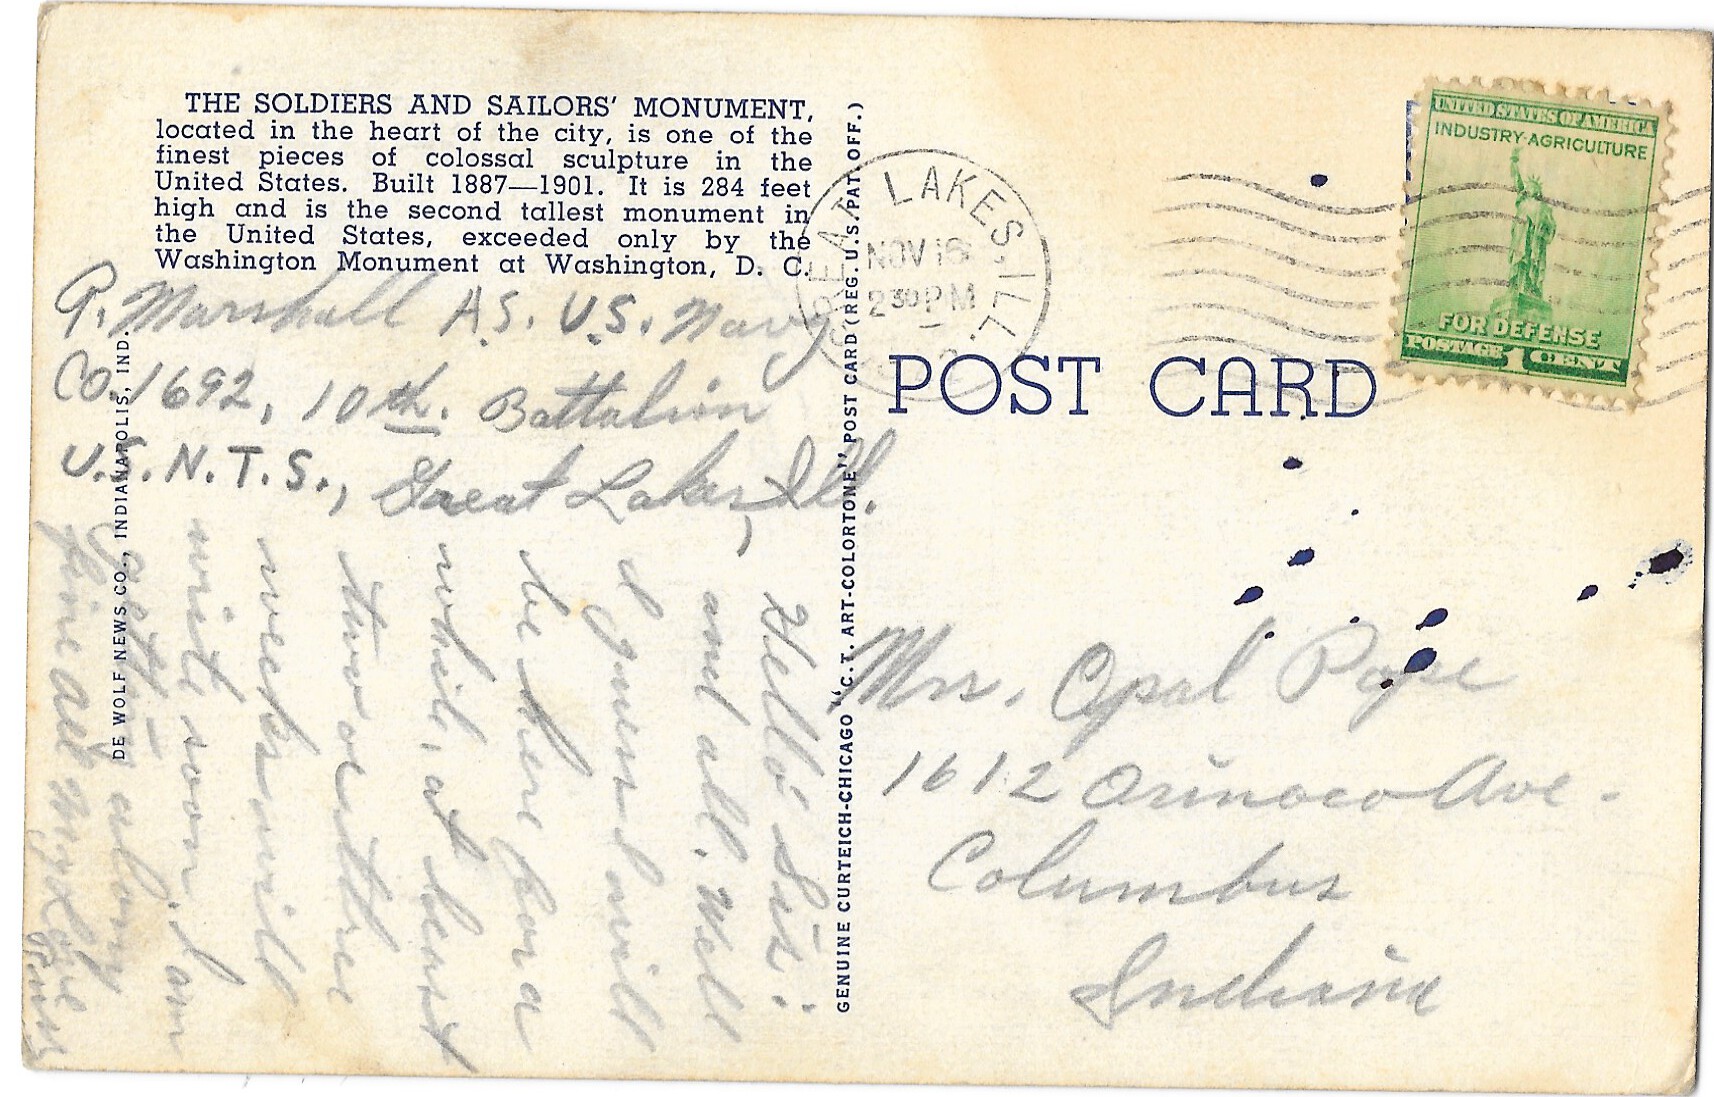 THE SOLDIERS AND SAILORS' MONUMENT,
located in the heart of the city, is one of the
finest pieces of colossal sculpture in the
United States. Built 1887—1901. It is 284 feet
high and is the second tallest monument in
the United States, exceeded only by the
Washington Monument at Washington, D. C.
Marshall A.S. U.S. Navy
Co. 1692, 10th. Battalion
U.S.N.T.S., Great Lakes, Ill.
Hello Sis:
and all. Well
I guess I will
be here for a
while, at least
two or three
weeks will
write soon. I am
getting along
fine all my love
DE WOLF NEWS CO., INDIANAPOLIS, IND.
GENUINE CURTEICH-CHICAGO "C.T. ART-COLORTONE" POST CARD (REG. U.S. PAT. OFF.)
GREAT LAKES, ILL.
NOV 16
2 30 PM
POST CARD
UNITED STATES OF AMERICA
INDUSTRY·AGRICULTURE
FOR DEFENSE
POSTAGE 1 CENT
Mrs. Opal Pope
1612 Orinoco Ave.
Columbus
Indiana